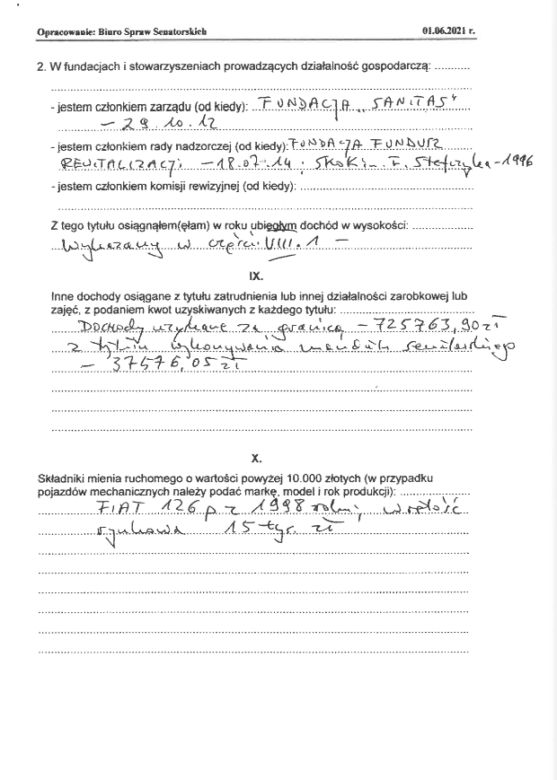 Opracowanie: Biuro Spraw Senatorskich 01.06.2021 r.
2. W fundacjach i stowarzyszeniach prowadzących działalność gospodarczą: ...........
- jestem członkiem zarządu (od kiedy): FUNDACJA „SANITAS"
– 29.10.12
- jestem członkiem rady nadzorczej (od kiedy): FUNDACJA FUNDUSZ
REWITALIZACJI – 18.07.14; SKOK im. F. Stefczyka – 1996
- jestem członkiem komisji rewizyjnej (od kiedy):
Z tego tytułu osiągnąłem(ęłam) w roku ubiegłym dochód w wysokości:
Wykazany w części VIII.1 –
IX.
Inne dochody osiągane z tytułu zatrudnienia lub innej działalności zarobkowej lub
zajęć, z podaniem kwot uzyskiwanych z każdego tytułu:
Dochody uzyskane za granicą – 725763,90 zł
z tytułu wykonywania mandatu senatorskiego
– 37576,05 zł
X.
Składniki mienia ruchomego o wartości powyżej 10.000 złotych (w przypadku
pojazdów mechanicznych należy podać markę, model i rok produkcji):
FIAT 126 p z 1998 roku; wartość
rynkowa 15 tys. zł